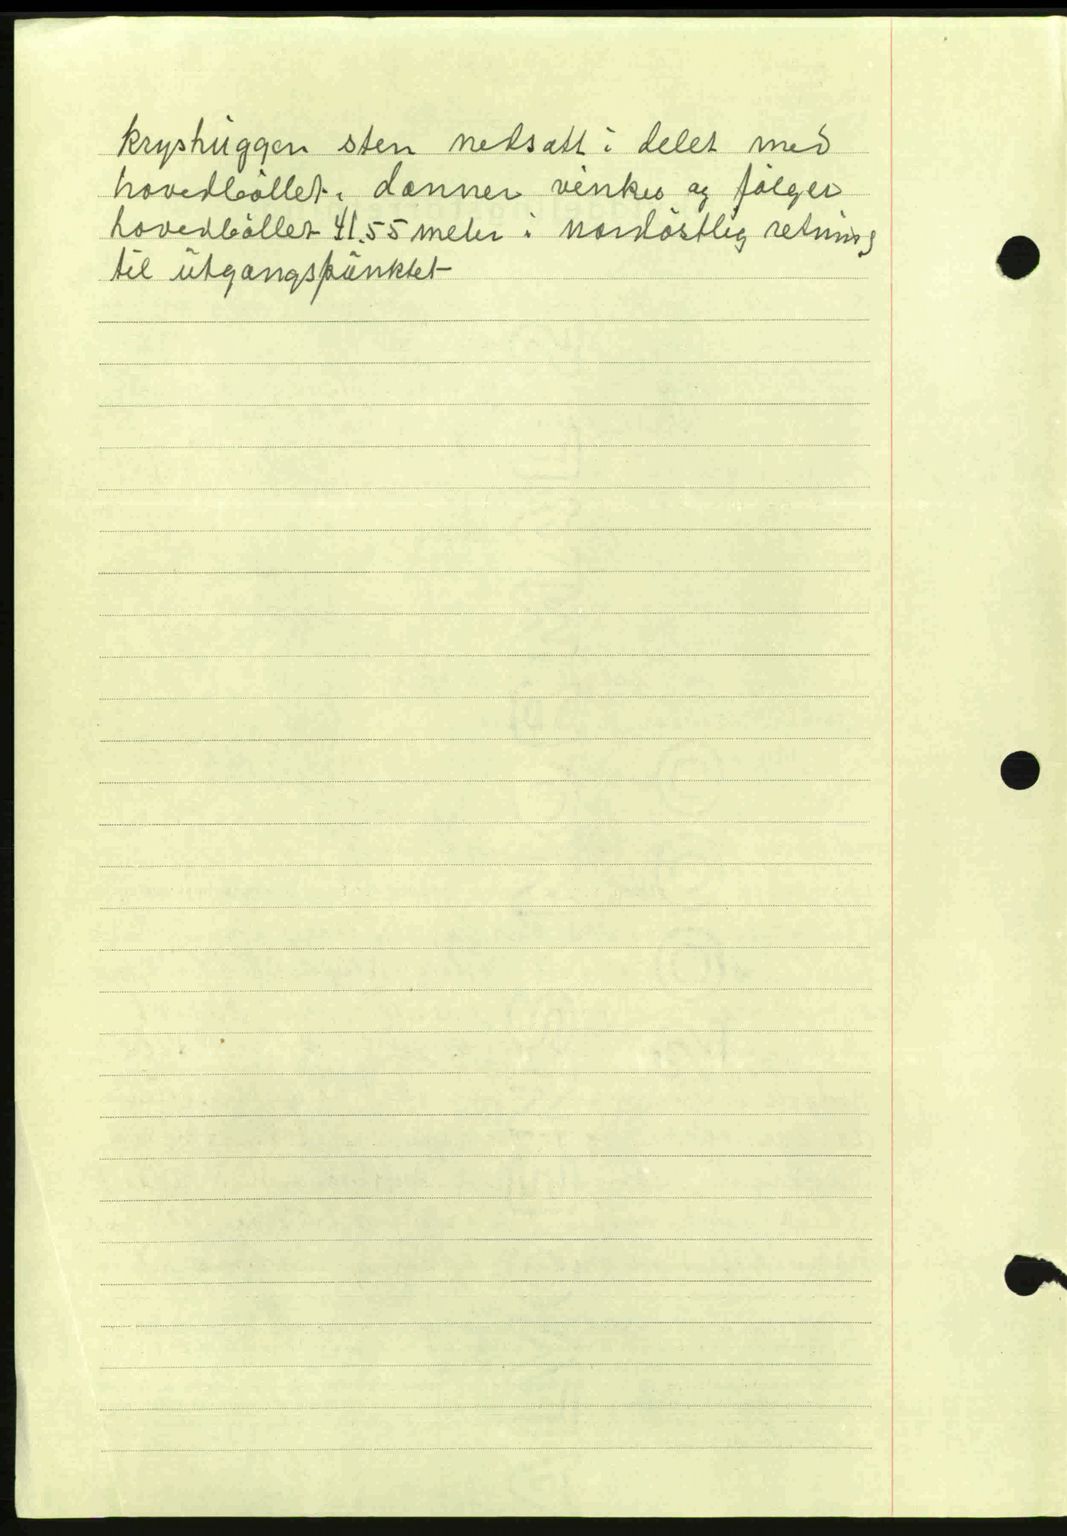 kryshuggen sten nedsatt i delet med
hovedbøllet, danner vinkel og følger
hovedbøllet 41.55 meter i nordöstlig retning
til utgangspunktet